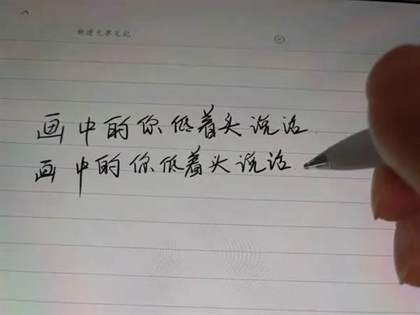 画中的你低着头说话
画中的你低着头说话